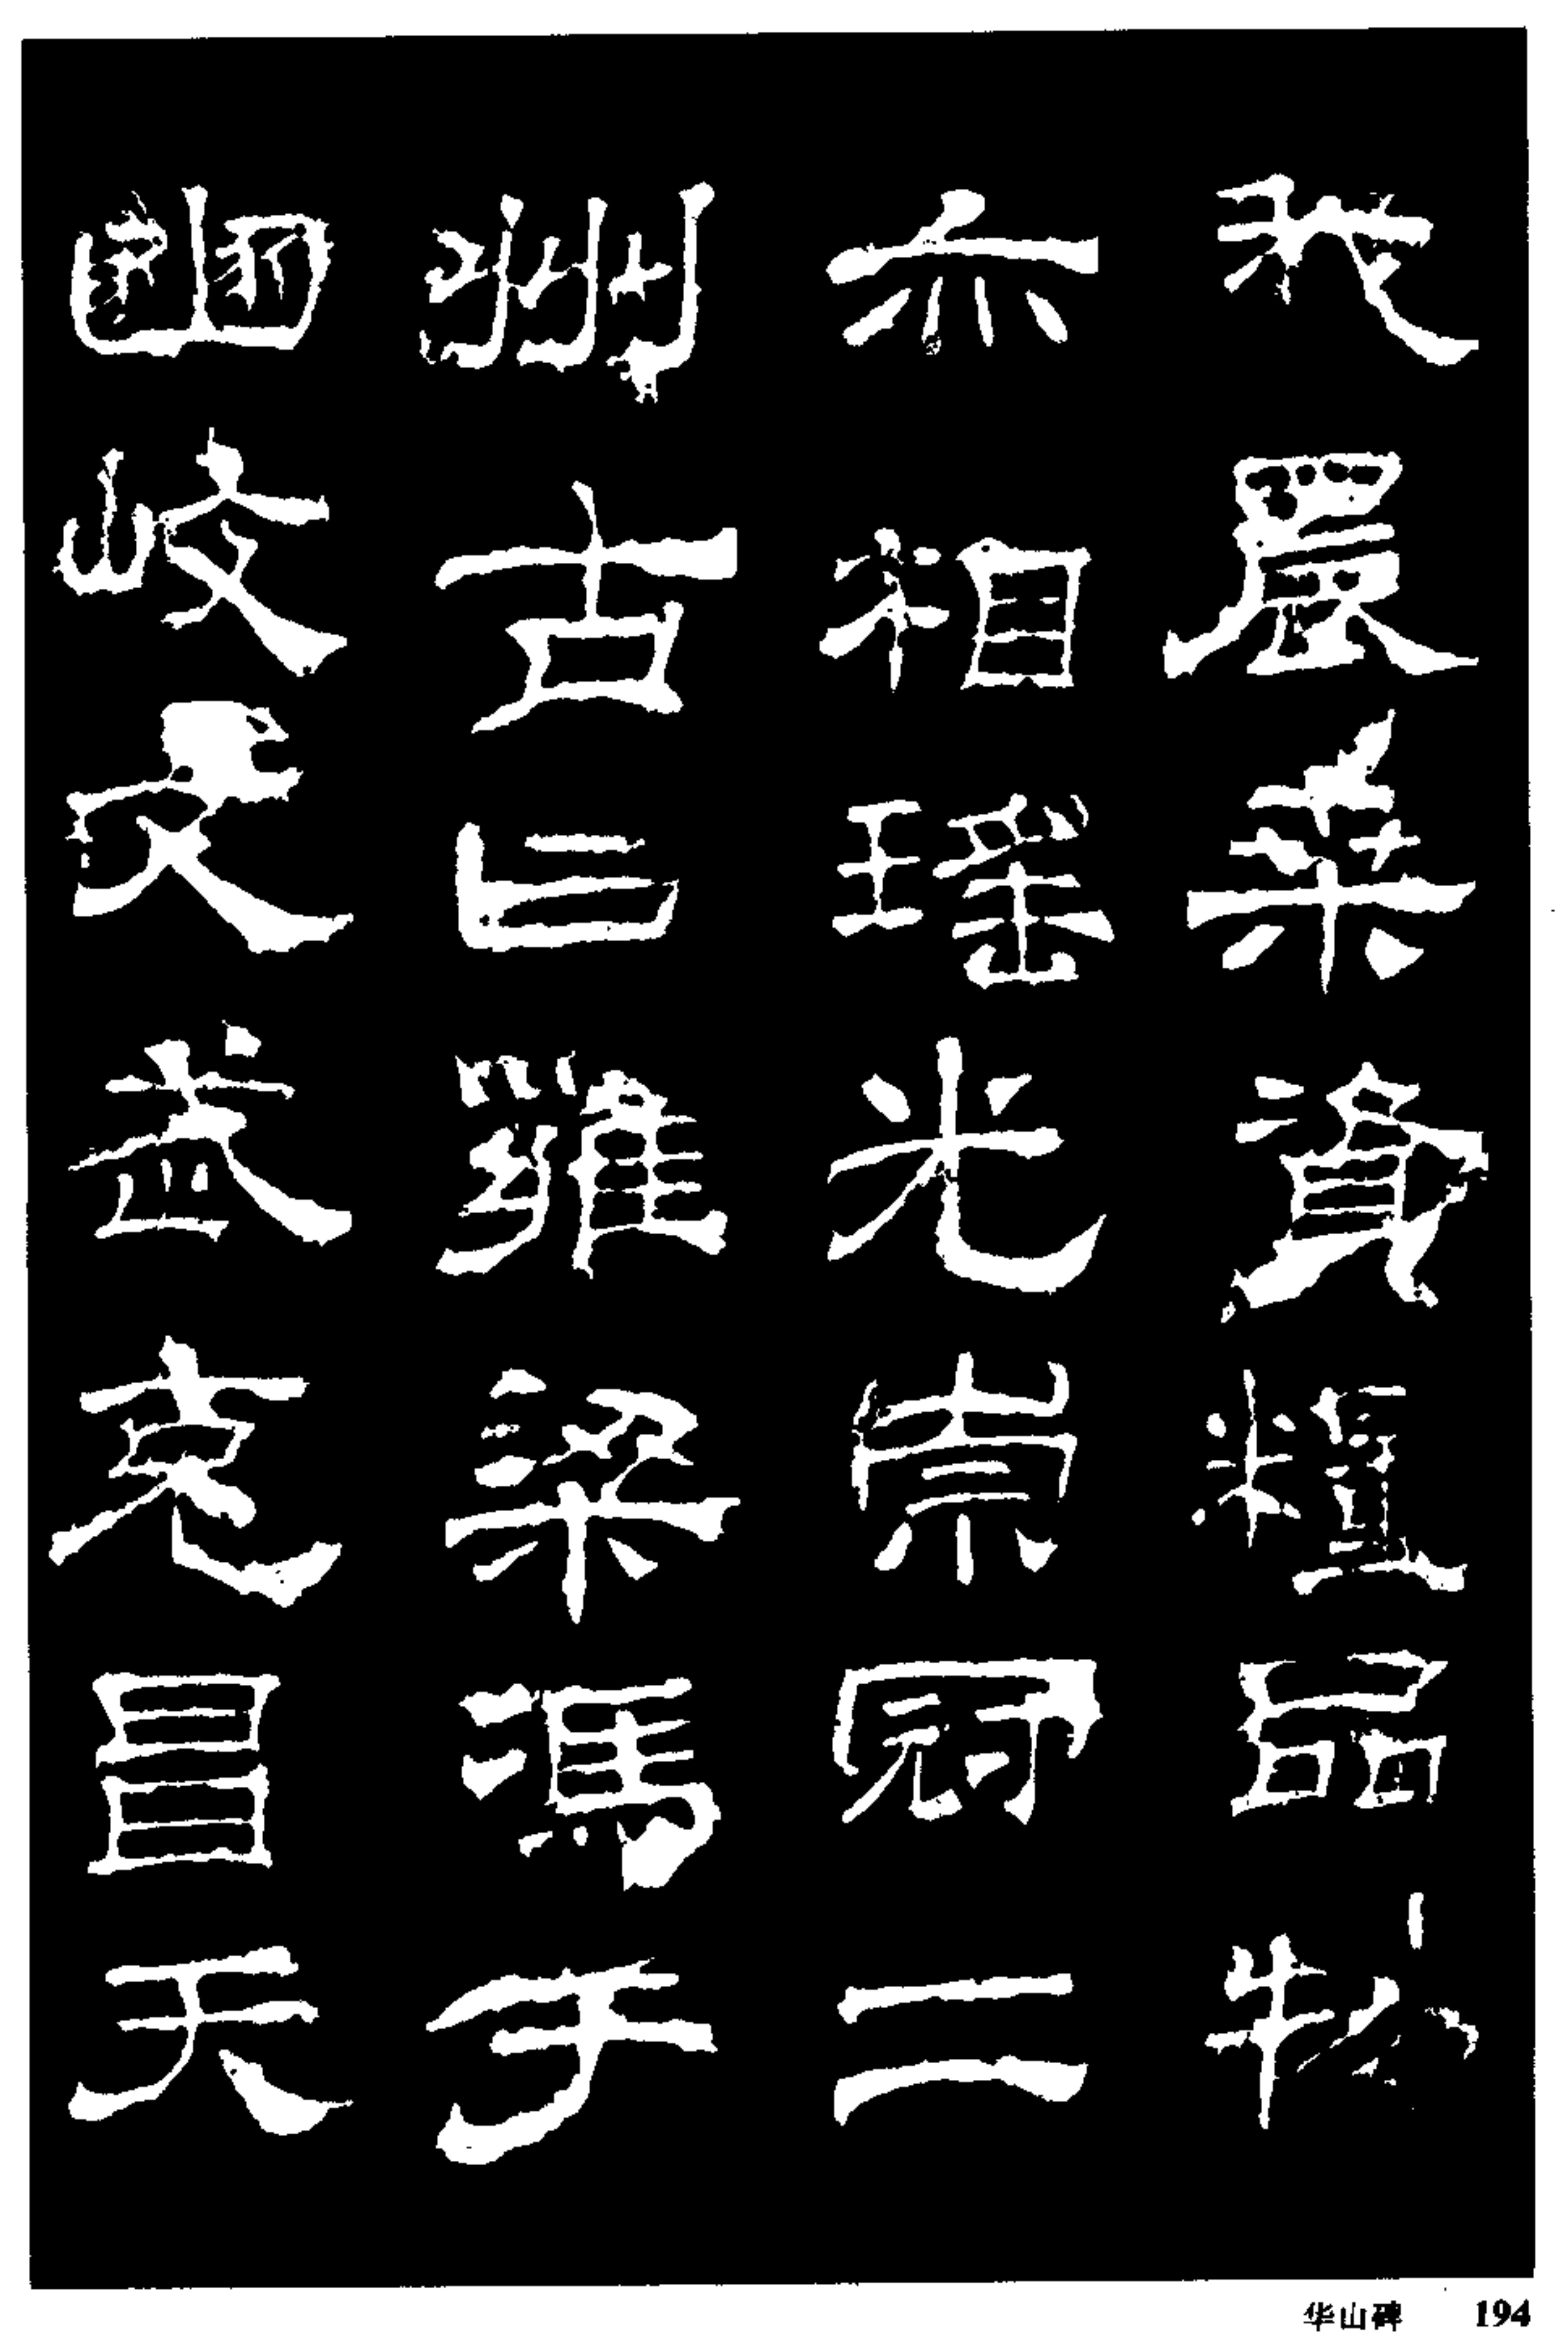 我農桑資糧品物
亦相瑤光崇冠二
州古曰雍梁馮于
豳岐文武克昌天
华山碑 194